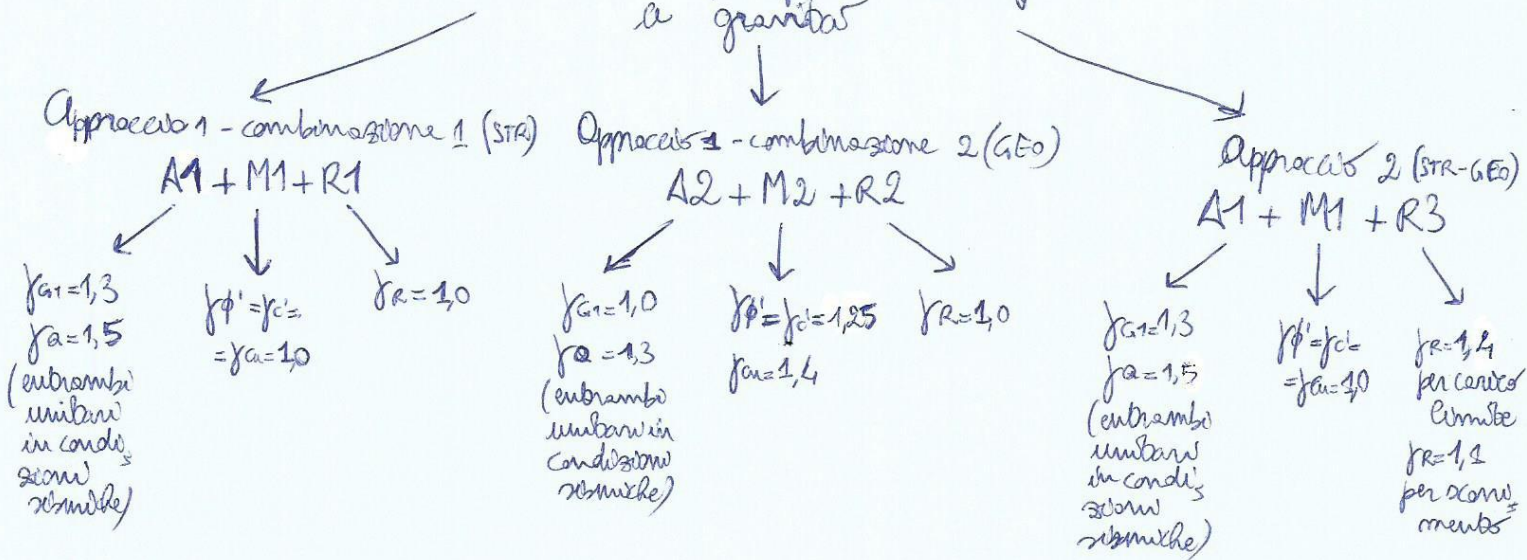 a gravità
Approccio 1 - combinazione 1 (STR)
A1 + M1 + R1
γG1=1,3
γQ=1,5
(entrambi
unitari
in condi
zioni
sismiche)
γφ'=γc'=
=γcu=1,0
γR=1,0
Approccio 1 - combinazione 2 (GEO)
A2 + M2 + R2
γG1=1,0
γQ=1,3
(entrambi
unitari in
condizioni
sismiche)
γφ'=γc'=1,25
γcu=1,4
γR=1,0
Approccio 2 (STR-GEO)
A1 + M1 + R3
γG1=1,3
γQ=1,5
(entrambi
unitari
in condi
zioni
sismiche)
γφ'=γc'=
=γcu=1,0
γR=1,4
per carico
limite
γR=1,1
per scorri
mento